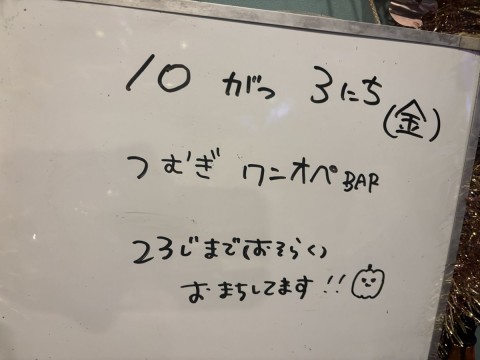 10 がつ 3にち
(金)
つむぎ ワニオペBAR
23じまで(おそらく)
おまちしてます!!